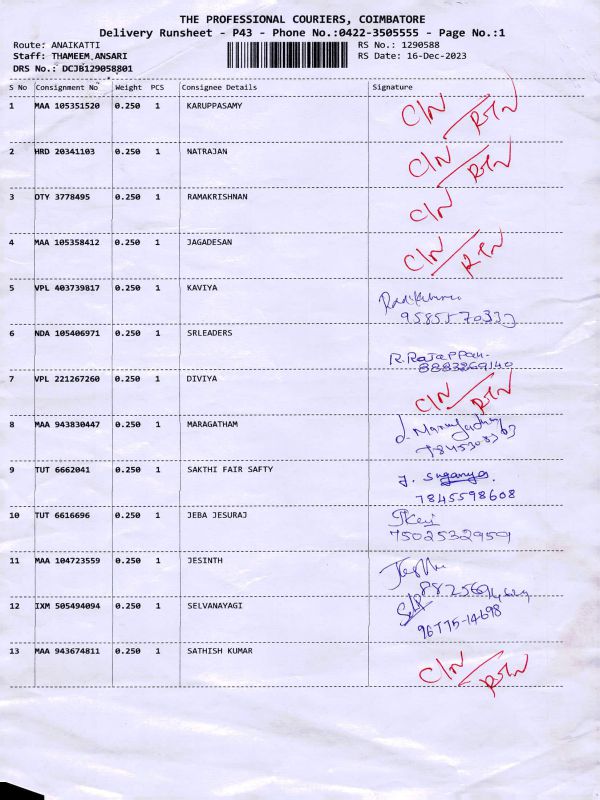 THE PROFESSIONAL COURIERS, COIMBATORE
Delivery Runsheet - P43 - Phone No.:0422-3505555 - Page No.:1
Route: ANAIKATTI RS No.: 1290588
Staff: THAMEEM ANSARI RS Date: 16-Dec-2023
DRS No.: DCJB129058801
S No Consignment No Weight PCS Consignee Details Signature
1 MAA 105351520 0.250 1 KARUPPASAMY C/N RTN
2 HRD 20341103 0.250 1 NATRAJAN C/N RTN
3 OTY 3778495 0.250 1 RAMAKRISHNAN C/N
4 MAA 105358412 0.250 1 JAGADESAN C/N RTN
5 VPL 403739817 0.250 1 KAVIYA
6 NDA 105406971 0.250 1 SRLEADERS R. Rajappan-
8883269140
7 VPL 221267260 0.250 1 DIVIYA C/N RTN
8 MAA 943830447 0.250 1 MARAGATHAM
7845308363
9 TUT 6662041 0.250 1 SAKTHI FAIR SAFTY J. Suganya
7845598608
10 TUT 6616696 0.250 1 JEBA JESURAJ
7502532959
11 MAA 104723559 0.250 1 JESINTH
12 IXM 505494094 0.250 1 SELVANAYAGI
96775-14698
13 MAA 943674811 0.250 1 SATHISH KUMAR C/N RTN